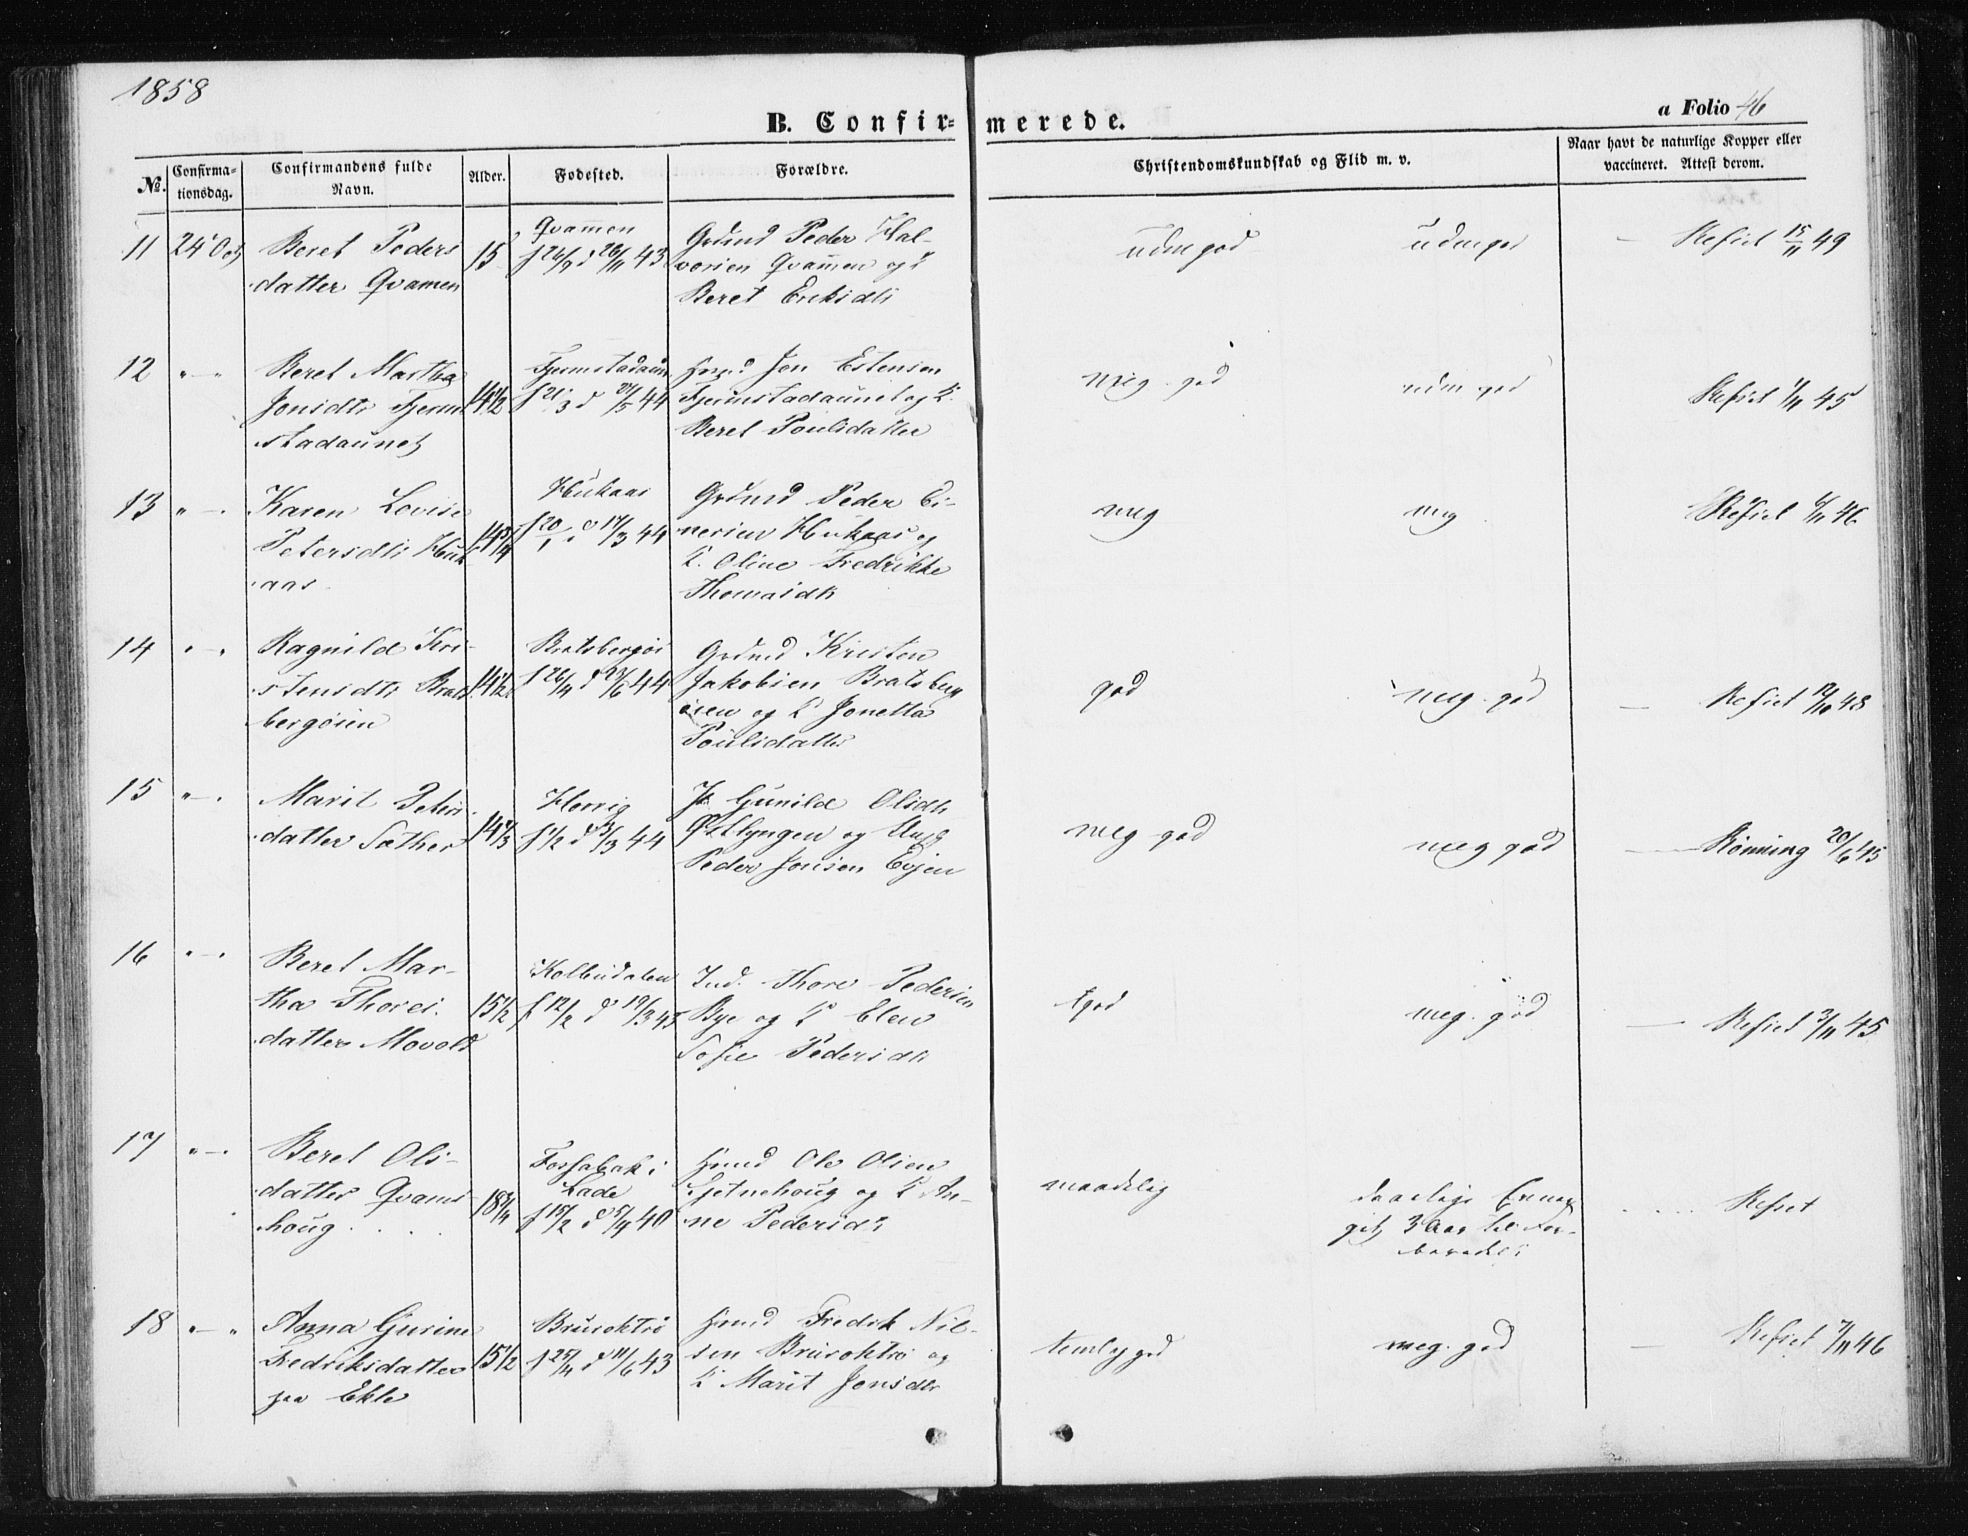 1858
B. Confirmerede.
a Folio 46
No.
Confirmationsdag.
Confirmandens fulde Navn.
Alder.
Fødested.
Forældre.
Christendomskundskab og Flid m. v.
Naar havt de naturlige Kopper eller vaccineret. Attest derom.
11 24 Oct
Beret Peders
datter Qvamen
15
Qvammen
f 24/9 d 26/11 43
Grdmd Peder Hal-
vorsen Qvammen og K
Beret Eriksdtr
udm god
udm god
Refset 15/11 49
12 " — "
Beret Martha
Jonsdtr Fjerm
stadaunet
14 1/2
Fjermstadaun
f 21/3 d 27/5 44
Hmd Jon Estensen
Fjermstadaunet og K.
Beret Poulsdatter
meg god
udm god
Refset 1/11 45
13 " — "
Karen Lovise
Petersdtr Huk
aas
14 3/4
Hukaas
f 20/1 d 17/3 44
Grdmd Peder Ei-
nersen Hukaas og
K. Oline Fredrikke
Thomasdtr
meg
meg
Refset 6/11 46
14 " — "
Ragnild Kri-
stensdtr Brats
bergøien
14 1/2
Bratsbergøi
f 26/4 d 23/6 44
Grdmd Kristen
Jakobsen Bratsberg
øien og K Jonetta
Poulsdatter
god
meg. god
Refset 12/10 48
15 " — "
Marit Peters
datter Sæther
14 2/3
Horrig
f 1/2 d 3/3 44
P. Gunild Olsdtr
Østlyngen og Ung
Peder Jonsen Evjen
meg god
meg god
Rønning 20/6 45
16 " — "
Beret Mar-
tha Thores
datter Movold
15 1/2
Kolbudalen
f 12/2 d 19/3 43
Ind. Thore Pedersen
Bye og K Elen
Sofie Pedersdtr
tgod
meg. god
Refset 3/11 45
17 " — "
Beret Ols-
datter Qvams
houg
18 3/4
Fossabak i
Lade
f 15/2 d 5/4 40
Hmd Ole Olsen
Sjetnehoug og K An-
ne Pedersdtr
maadelig
daarlige Evner
git 3 Aar til For-
beredels
Refset
18 " — "
Anna Gurine
Fredriksdatter
paa Ekle
15 1/2
Bruroktrø
f 25/4 d 11/6 43
Hmd Fredrk Nil-
sen Bruroktrø og
K Marit Jonsdtr
temlig god
meg. god
Refset 7/11 46